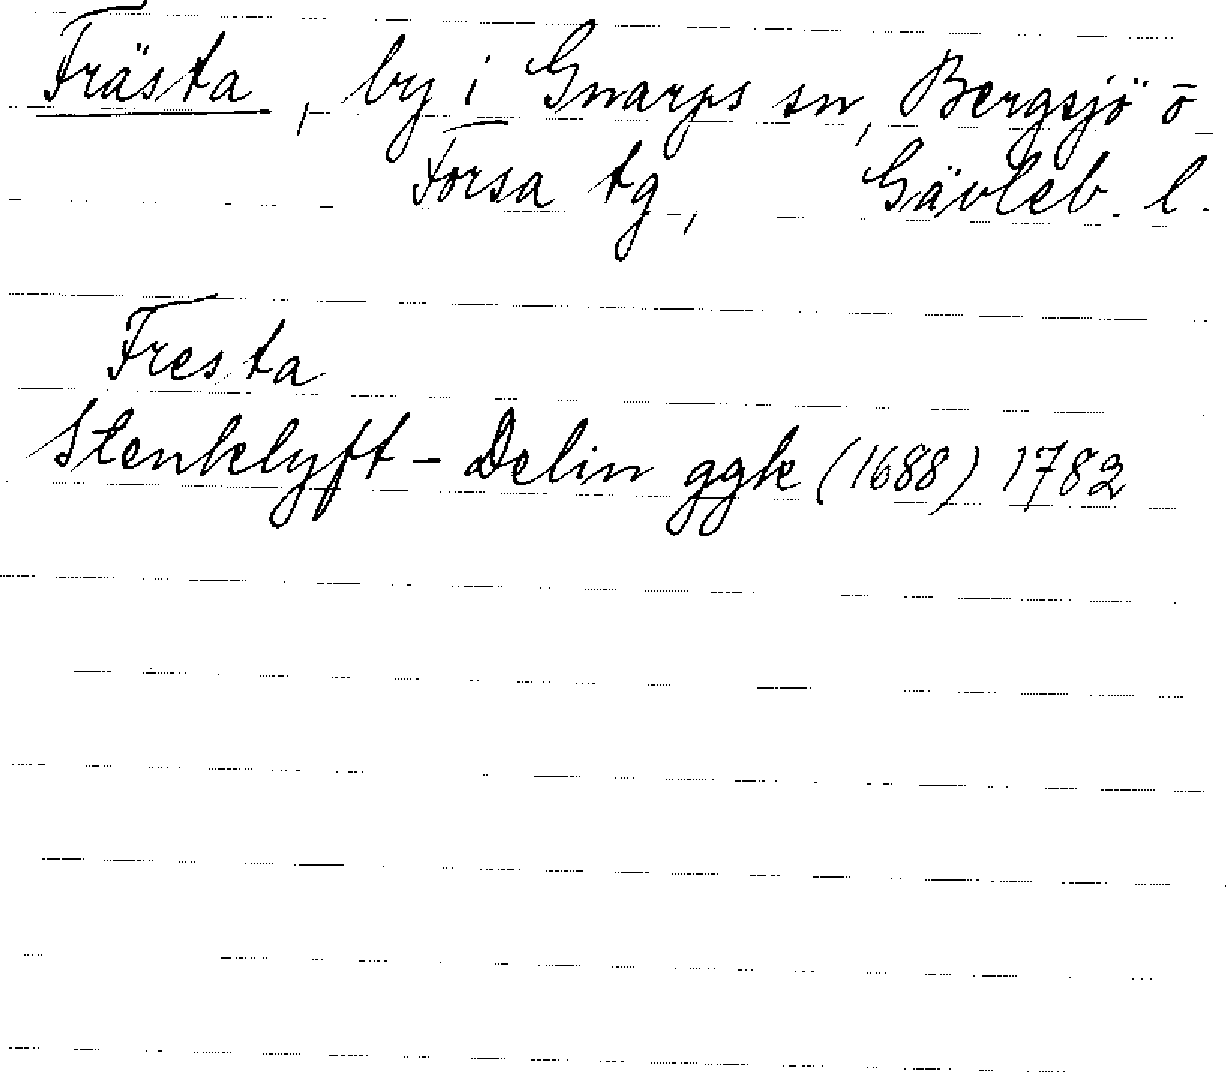 Frästa, by i Gnarps sn, Bergsjö o
Forsa tg, Gävleb. l.
Fresta
Stenklyft - Delin ggk (1688) 1782